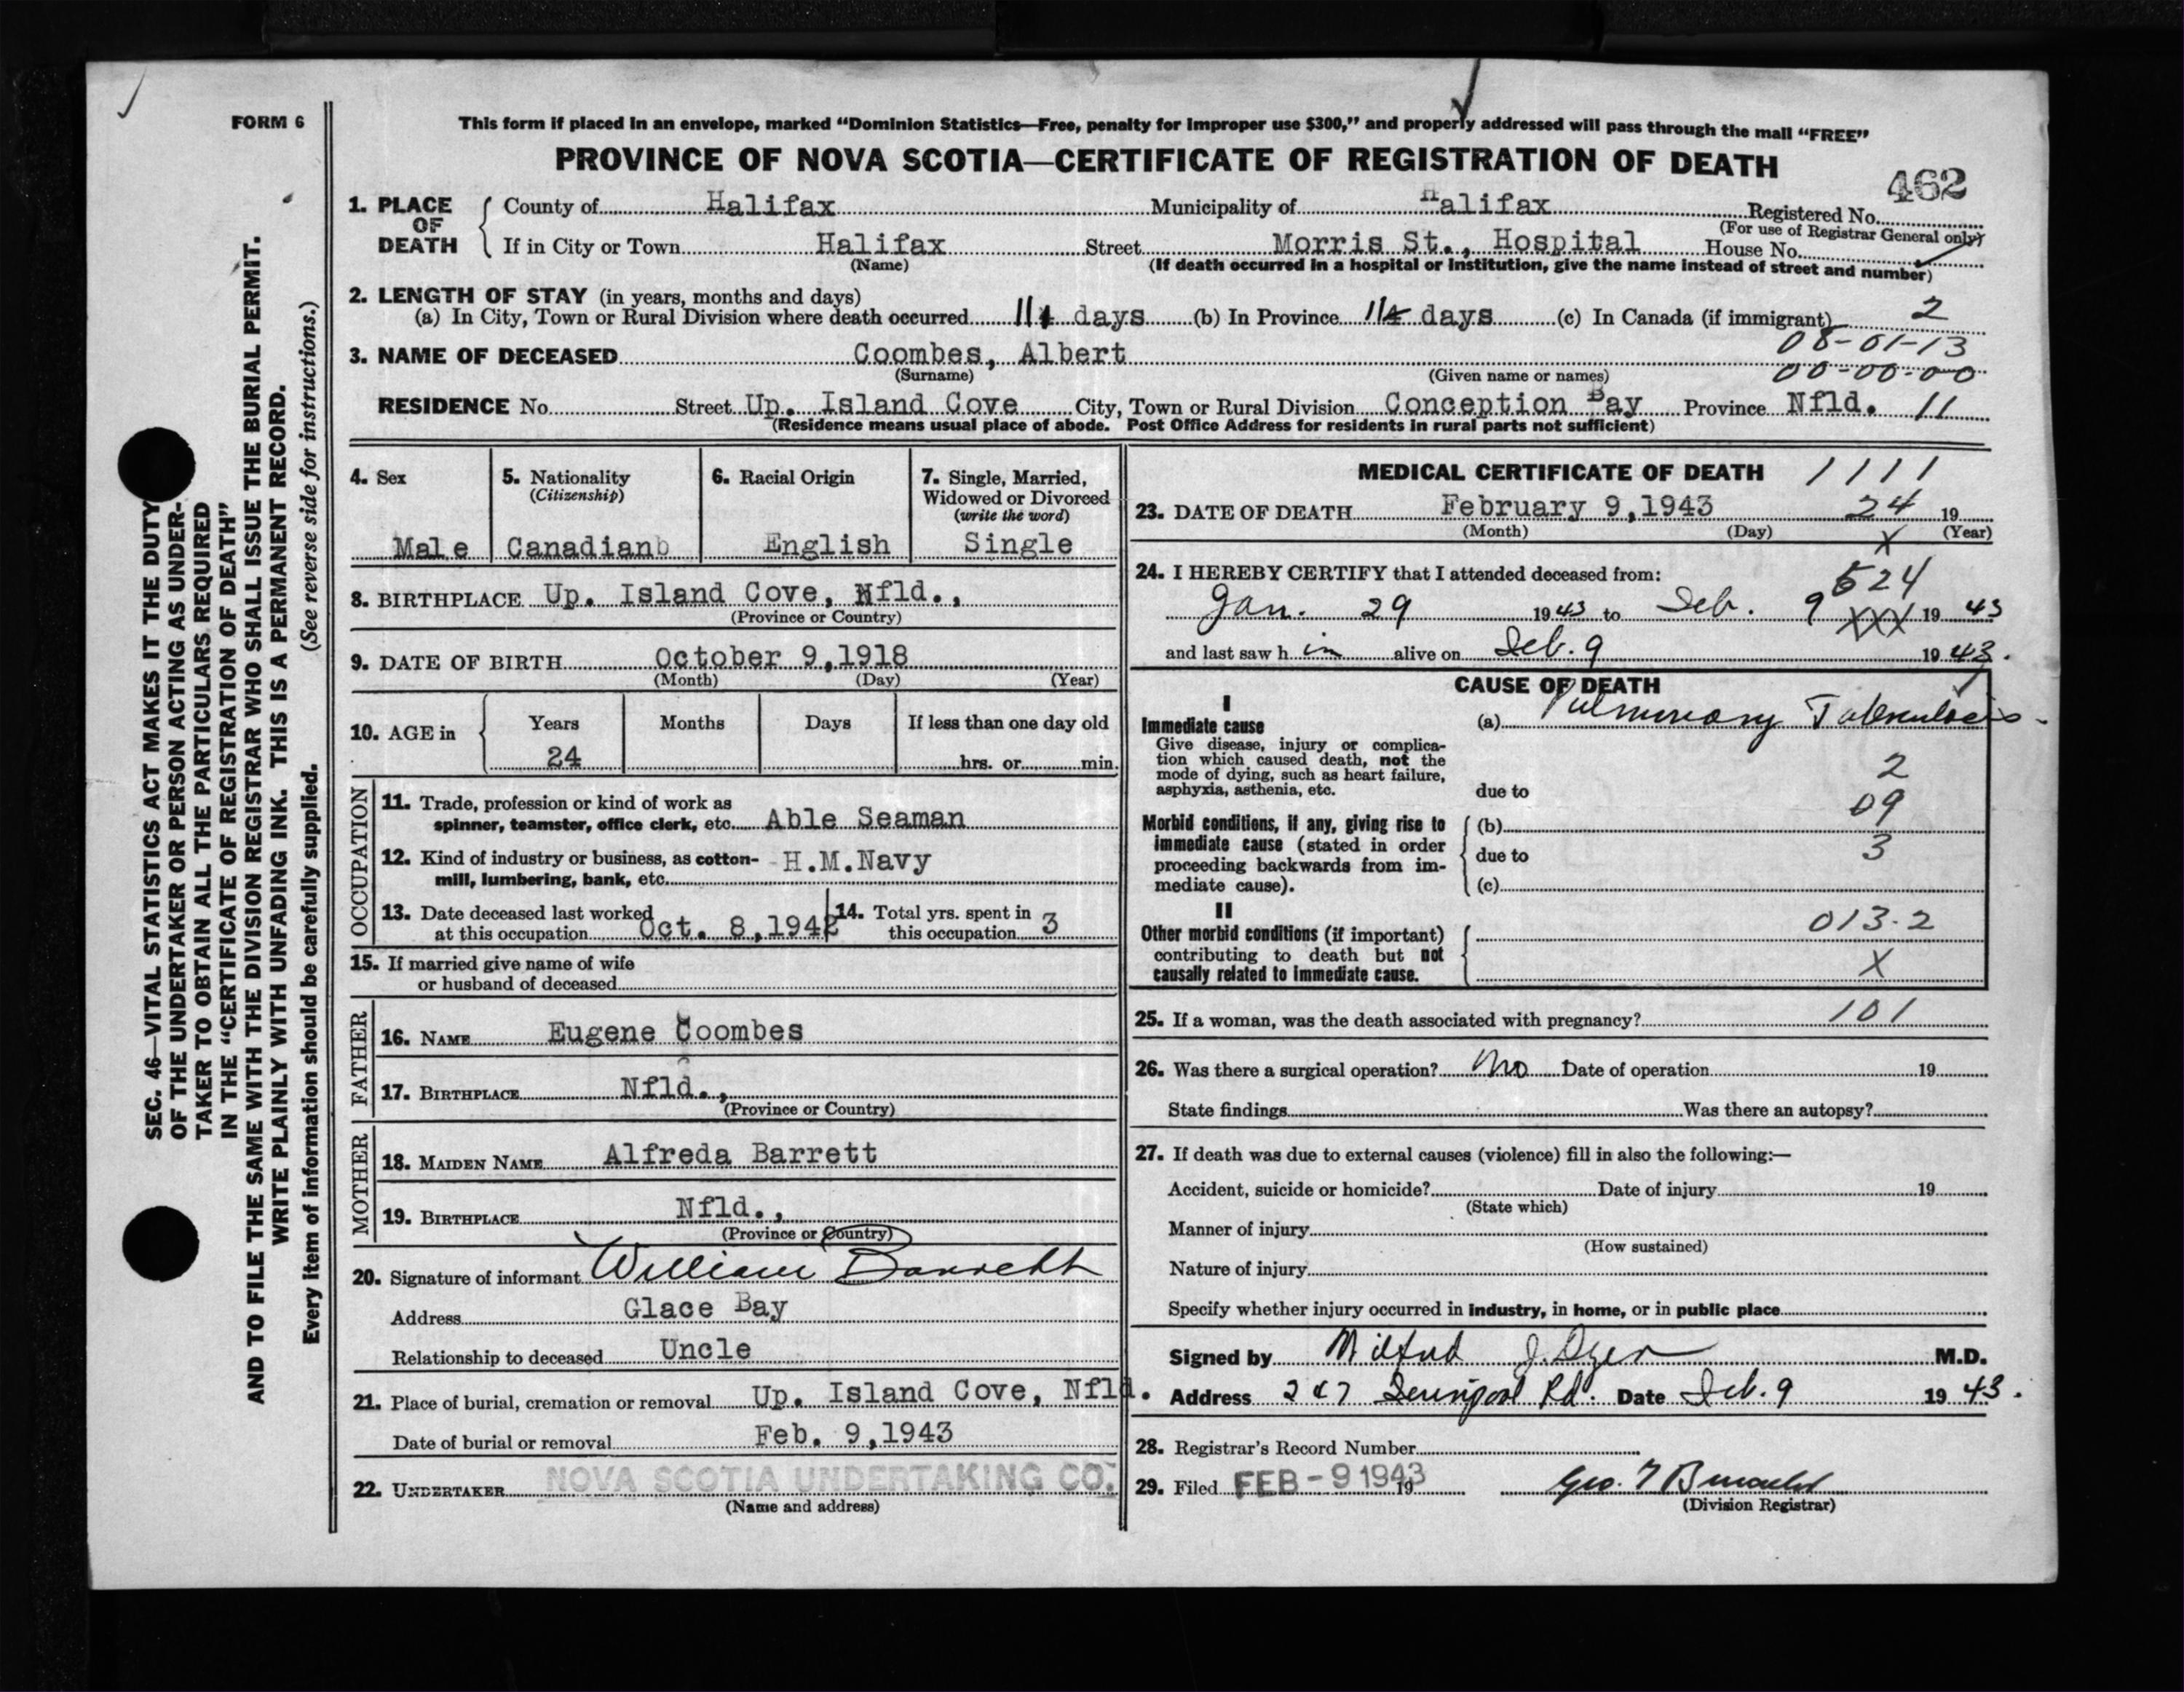 FORM 6
This form if placed in an envelope, marked "Dominion Statistics—Free, penalty for improper use $300," and properly addressed will pass through the mail "FREE"
PROVINCE OF NOVA SCOTIA—CERTIFICATE OF REGISTRATION OF DEATH
462
1. PLACE OF DEATH County of Halifax Municipality of Halifax Registered No.
(For use of Registrar General only)
If in City or Town Halifax Street Morris St., Hospital House No.
(Name) (If death occurred in a hospital or institution, give the name instead of street and number)
2. LENGTH OF STAY (in years, months and days)
(a) In City, Town or Rural Division where death occurred days (b) In Province days (c) In Canada (if immigrant) 2
08-01-13
3. NAME OF DECEASED Coombes, Albert 00-00-00
(Surname) (Given name or names)
RESIDENCE No. Street Up. Island Cove City, Town or Rural Division Conception Bay Province Nfld. 11
(Residence means usual place of abode. Post Office Address for residents in rural parts not sufficient)
4. Sex
Male
5. Nationality
(Citizenship)
Canadianb
6. Racial Origin
English
7. Single, Married,
Widowed or Divorced
(write the word)
Single
8. BIRTHPLACE Up. Island Cove, Nfld.,
(Province or Country)
9. DATE OF BIRTH October 9,1918
(Month) (Day) (Year)
10. AGE in Years Months Days If less than one day old
24 hrs. or min.
OCCUPATION
11. Trade, profession or kind of work as
spinner, teamster, office clerk, etc. Able Seaman
12. Kind of industry or business, as cotton- H.M.Navy
mill, lumbering, bank, etc.
13. Date deceased last worked
at this occupation Oct. 8,1942
14. Total yrs. spent in
this occupation 3
15. If married give name of wife
or husband of deceased
FATHER
16. NAME Eugene Coombes
17. BIRTHPLACE Nfld.,
(Province or Country)
MOTHER
18. MAIDEN NAME Alfreda Barrett
19. BIRTHPLACE Nfld.,
(Province or Country)
20. Signature of informant William Barrett
Address Glace Bay
Relationship to deceased Uncle
21. Place of burial, cremation or removal Up. Island Cove, Nfld.
Date of burial or removal Feb. 9,1943
22. UNDERTAKER NOVA SCOTIA UNDERTAKING CO.
(Name and address)
MEDICAL CERTIFICATE OF DEATH 1111
23. DATE OF DEATH February 9,1943 24 19
(Month) (Day) X (Year)
24. I HEREBY CERTIFY that I attended deceased from: 524
Jan. 29 1943 to Feb. 9 XXX 1943
and last saw h im alive on Feb. 9 1943.
CAUSE OF DEATH
I
Immediate cause (a) Pulmonary Tuberculosis
Give disease, injury or complica-
tion which caused death, not the
mode of dying, such as heart failure,
asphyxia, asthenia, etc. due to
2
09
3
Morbid conditions, if any, giving rise to (b)
immediate cause (stated in order due to
proceeding backwards from im-
mediate cause). (c)
II
Other morbid conditions (if important) 013.2
contributing to death but not
causally related to immediate cause. X
25. If a woman, was the death associated with pregnancy? 101
26. Was there a surgical operation? No Date of operation 19
State findings Was there an autopsy?
27. If death was due to external causes (violence) fill in also the following:—
Accident, suicide or homicide? Date of injury 19
(State which)
Manner of injury
(How sustained)
Nature of injury
Specify whether injury occurred in industry, in home, or in public place
Signed by J. Dyer M.D.
Address Rd. Date Feb. 9 1943.
28. Registrar's Record Number
29. Filed FEB - 9 1943 19 Geo.
(Division Registrar)
SEC. 46—VITAL STATISTICS ACT MAKES IT THE DUTY
OF THE UNDERTAKER OR PERSON ACTING AS UNDER-
TAKER TO OBTAIN ALL THE PARTICULARS REQUIRED
IN THE "CERTIFICATE OF REGISTRATION OF DEATH"
AND TO FILE THE SAME WITH THE DIVISION REGISTRAR WHO SHALL ISSUE THE BURIAL PERMIT.
WRITE PLAINLY WITH UNFADING INK. THIS IS A PERMANENT RECORD.
Every item of information should be carefully supplied. (See reverse side for instructions.)